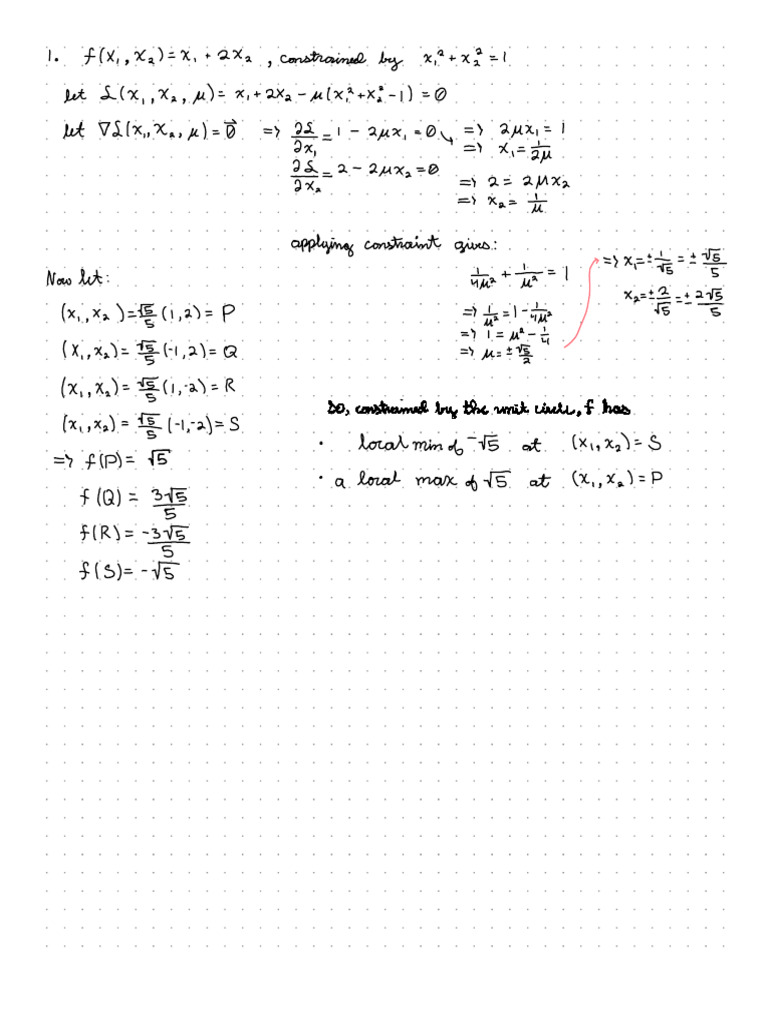 1. f(x₁, x₂) = x₁ + 2x₂, constrained by x₁² + x₂² = 1
let ℒ(x₁, x₂, μ) = x₁ + 2x₂ - μ(x₁² + x₂² - 1) = 0
let ∇ℒ(x₁, x₂, μ) = 0⃗ => ∂ℒ/∂x₁ = 1 - 2μx₁ = 0 ↘ => 2μx₁ = 1
=> x₁ = 1/2μ
∂ℒ/∂x₂ = 2 - 2μx₂ = 0
=> 2 = 2μx₂
=> x₂ = 1/μ
applying constraint gives:
1/4μ² + 1/μ² = 1
=> 1/μ² = 1 - 1/4μ²
=> 1 = μ² - 1/4
=> μ = ± √5/2
=> x₁ = ± 1/√5 = ± √5/5
x₂ = ± 2/√5 = ± 2√5/5
Now let:
(x₁, x₂) = √5/5 (1, 2) = P
(x₁, x₂) = √5/5 (-1, 2) = Q
(x₁, x₂) = √5/5 (1, -2) = R
(x₁, x₂) = √5/5 (-1, -2) = S
=> f(P) = √5
f(Q) = 3√5/5
f(R) = -3√5/5
f(S) = -√5
So, constrained by the unit circle, f has
· local min of -√5 at (x₁, x₂) = S
· a local max of √5 at (x₁, x₂) = P